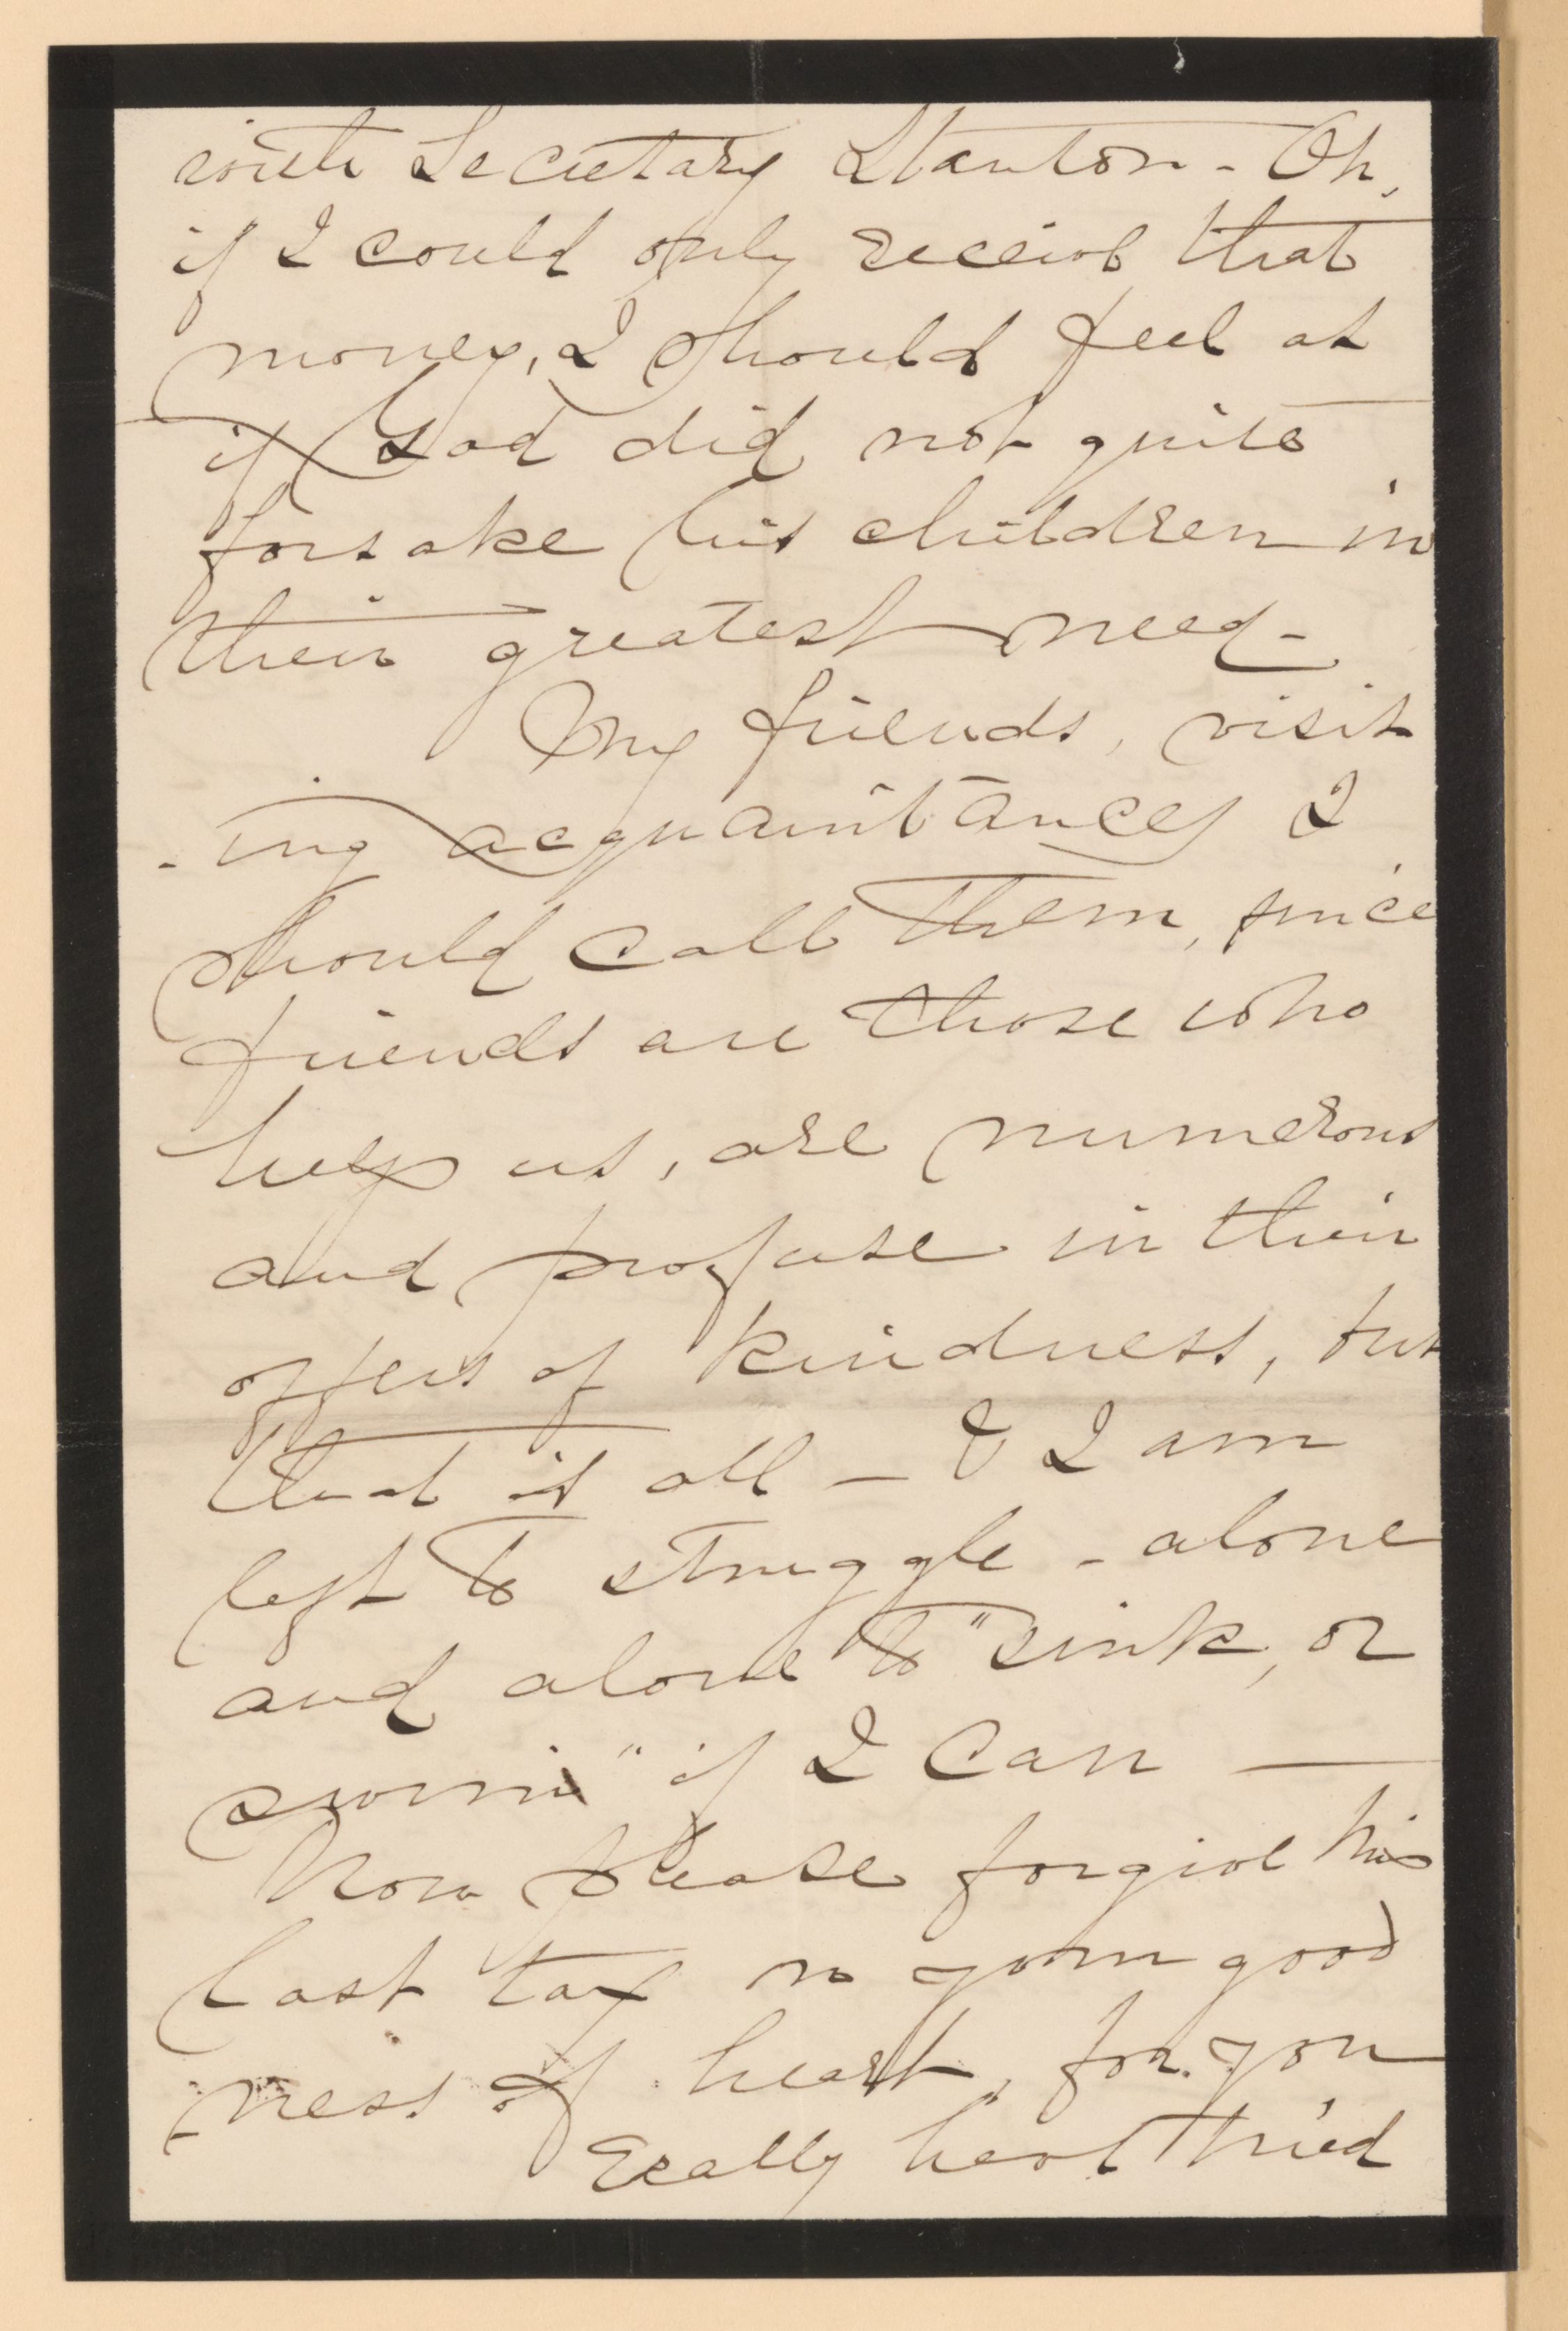 with Secretary Stanton - Oh,
if I could only receive that
money, I should feel as
if God did not quite
forsake his children in
their greatest need -
My friends, visit
-ing acquaintances I
should call them, since
friends are those who
help us, are numerous
and profuse in their
offers of kindness, but
that is all - & I am
left to struggle - alone
and alone to "sink, or
swim" if I can —
Now please forgive this
last tax on your good
-ness of heart, for you
really have tried